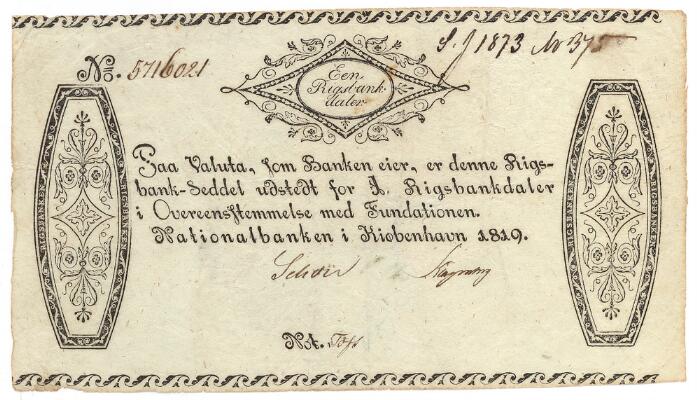 S. J 1873 Nr 375
No. 5716021
Een
Rigsbank-
daler.
Paa Valuta, som Banken eier, er denne Rigs-
bank-Seddel udstedt for 1. Rigsbankdaler
i Overeensstemmelse med Fundationen.
Nationalbanken i Kiøbenhavn 1819.
Not.
RIGSBANKEN
RIGSBANKEN
RIGSBANKEN
RIGSBANKEN